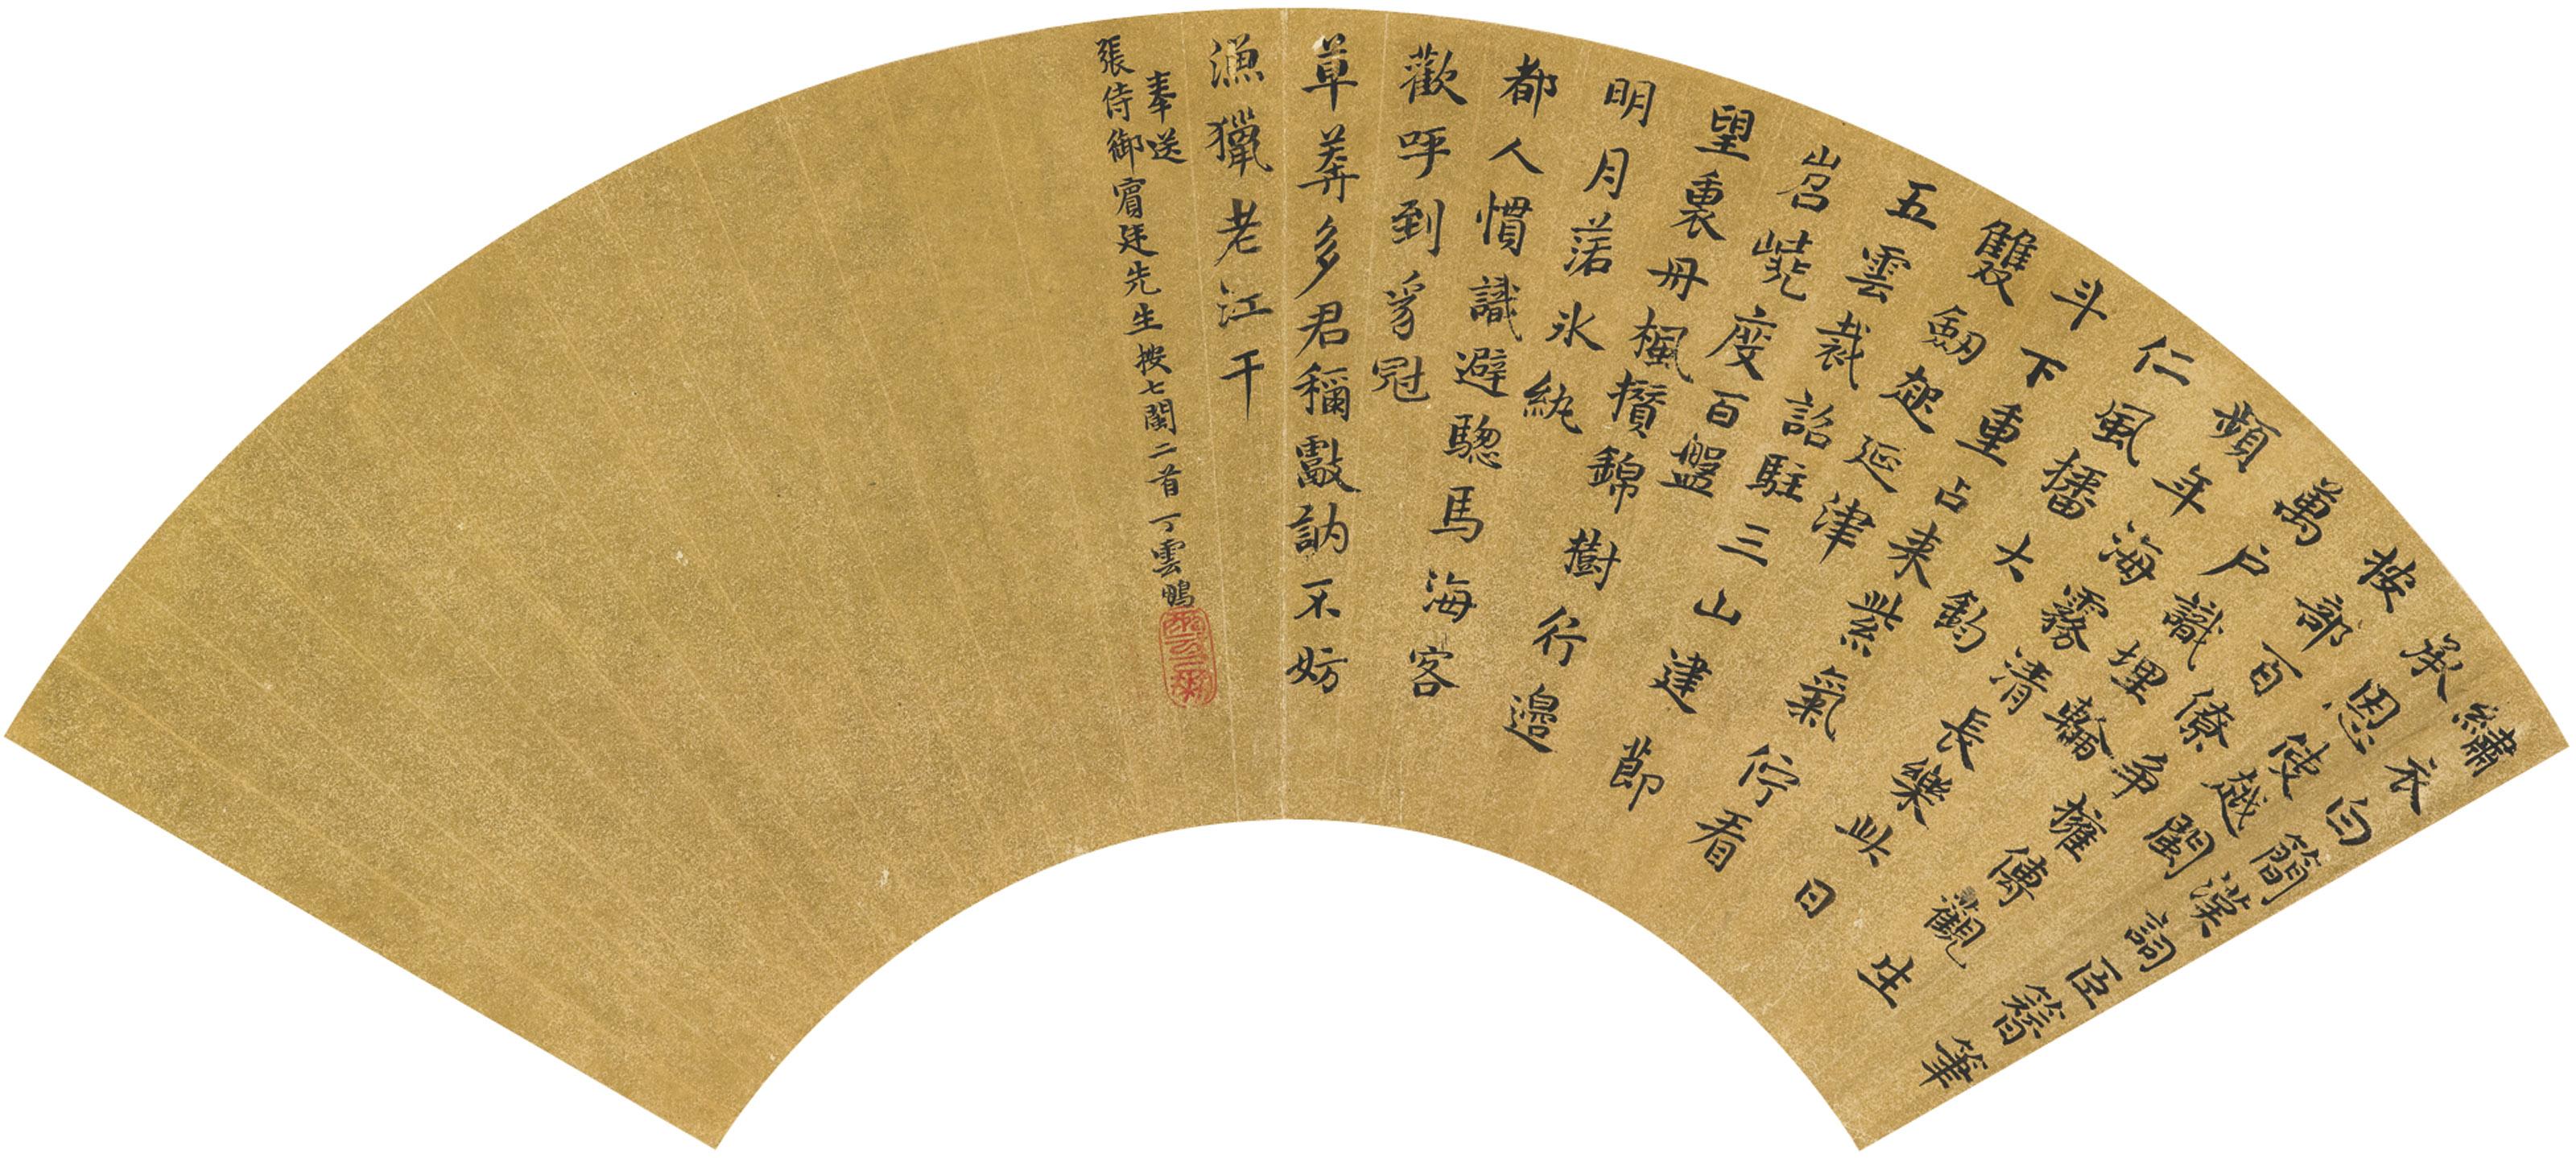 繡衣白簡漢詞臣簪筆
承恩使越閩
按部百僚爭擁傳觀生
萬戶識埋輪
頻年海霧清長樂此日
仁風播大鈞
斗下重占来紫氣佇看
雙劒起延津
五雲裁詔駐三山建節
岧嶤度百盤
望裏丹楓攢錦樹行邊
明月落氷紈
都人慣識避驄馬海客
歡呼到豸冠
草莽多君稱獻訥不妨
漁獵老江干
奉送
張侍御賓廷先生按七閩二首 丁雲鵬